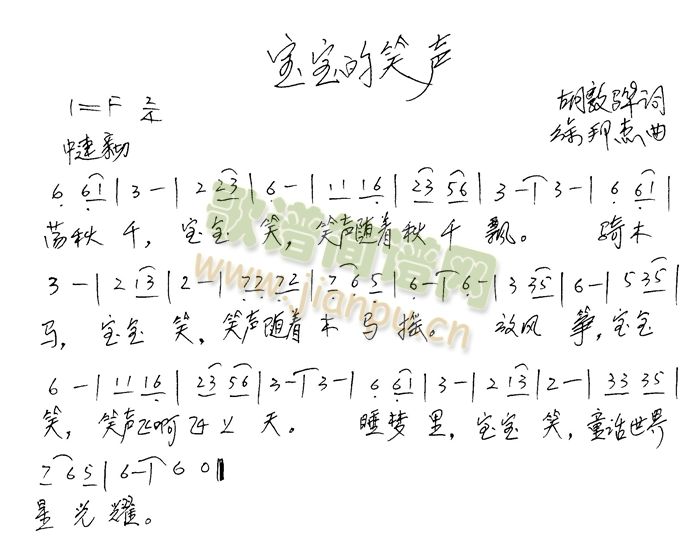 宝宝的笑声
1=F 2/4
胡敦骅词
中速
徐邦杰曲
6 6 1 | 3 - | 2 2 3 | 6 - | 1 1 1 6 | 2 3 5 6 | 3 - | 3 - | 6 6 1 |
荡秋千，宝宝笑，笑声随着秋千飘。骑木
3 - | 2 1 3 | 2 - | 7 7 7 2 | 7 6 5 | 6 - | 6 - | 3 3 5 | 6 - | 5 3 5 |
马，宝宝笑，笑声随着木马摇。放风筝，宝宝
6 - | 1 1 1 6 | 2 3 5 6 | 3 - | 3 - | 6 6 1 | 3 - | 2 1 3 | 2 - | 3 3 3 5 |
笑，笑声飞啊飞上天。睡梦里，宝宝笑，童话世界
7 6 5 | 6 - | 6 0 ‖
星光耀。
歌谱简谱网
www.jianpu.cn